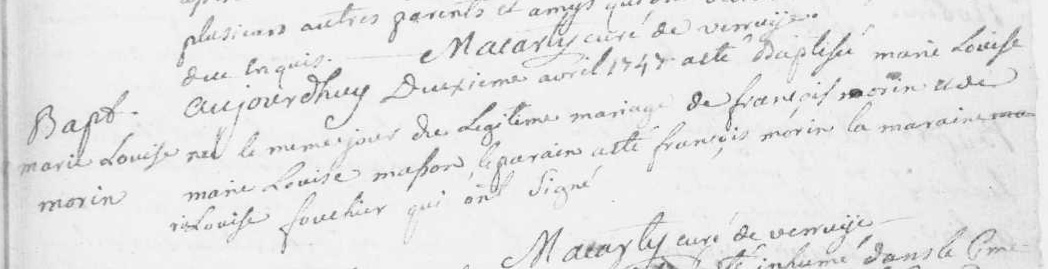 plusieurs autres parents et amys qui
due Enquis. Macarty curé de verruije.
Bapt.
marie Louise
morin
aujourdhuy Deuxieme avril 1747 a eté Baptisée marie Louise
neé le meme jour du Legitime mariage de françois morin et de
marie Louise masson, le parain a eté françois morin la maraine ma
rie Louise fouchier qui ont signé
Macarty curé de verruije
inhumé dans le Cime